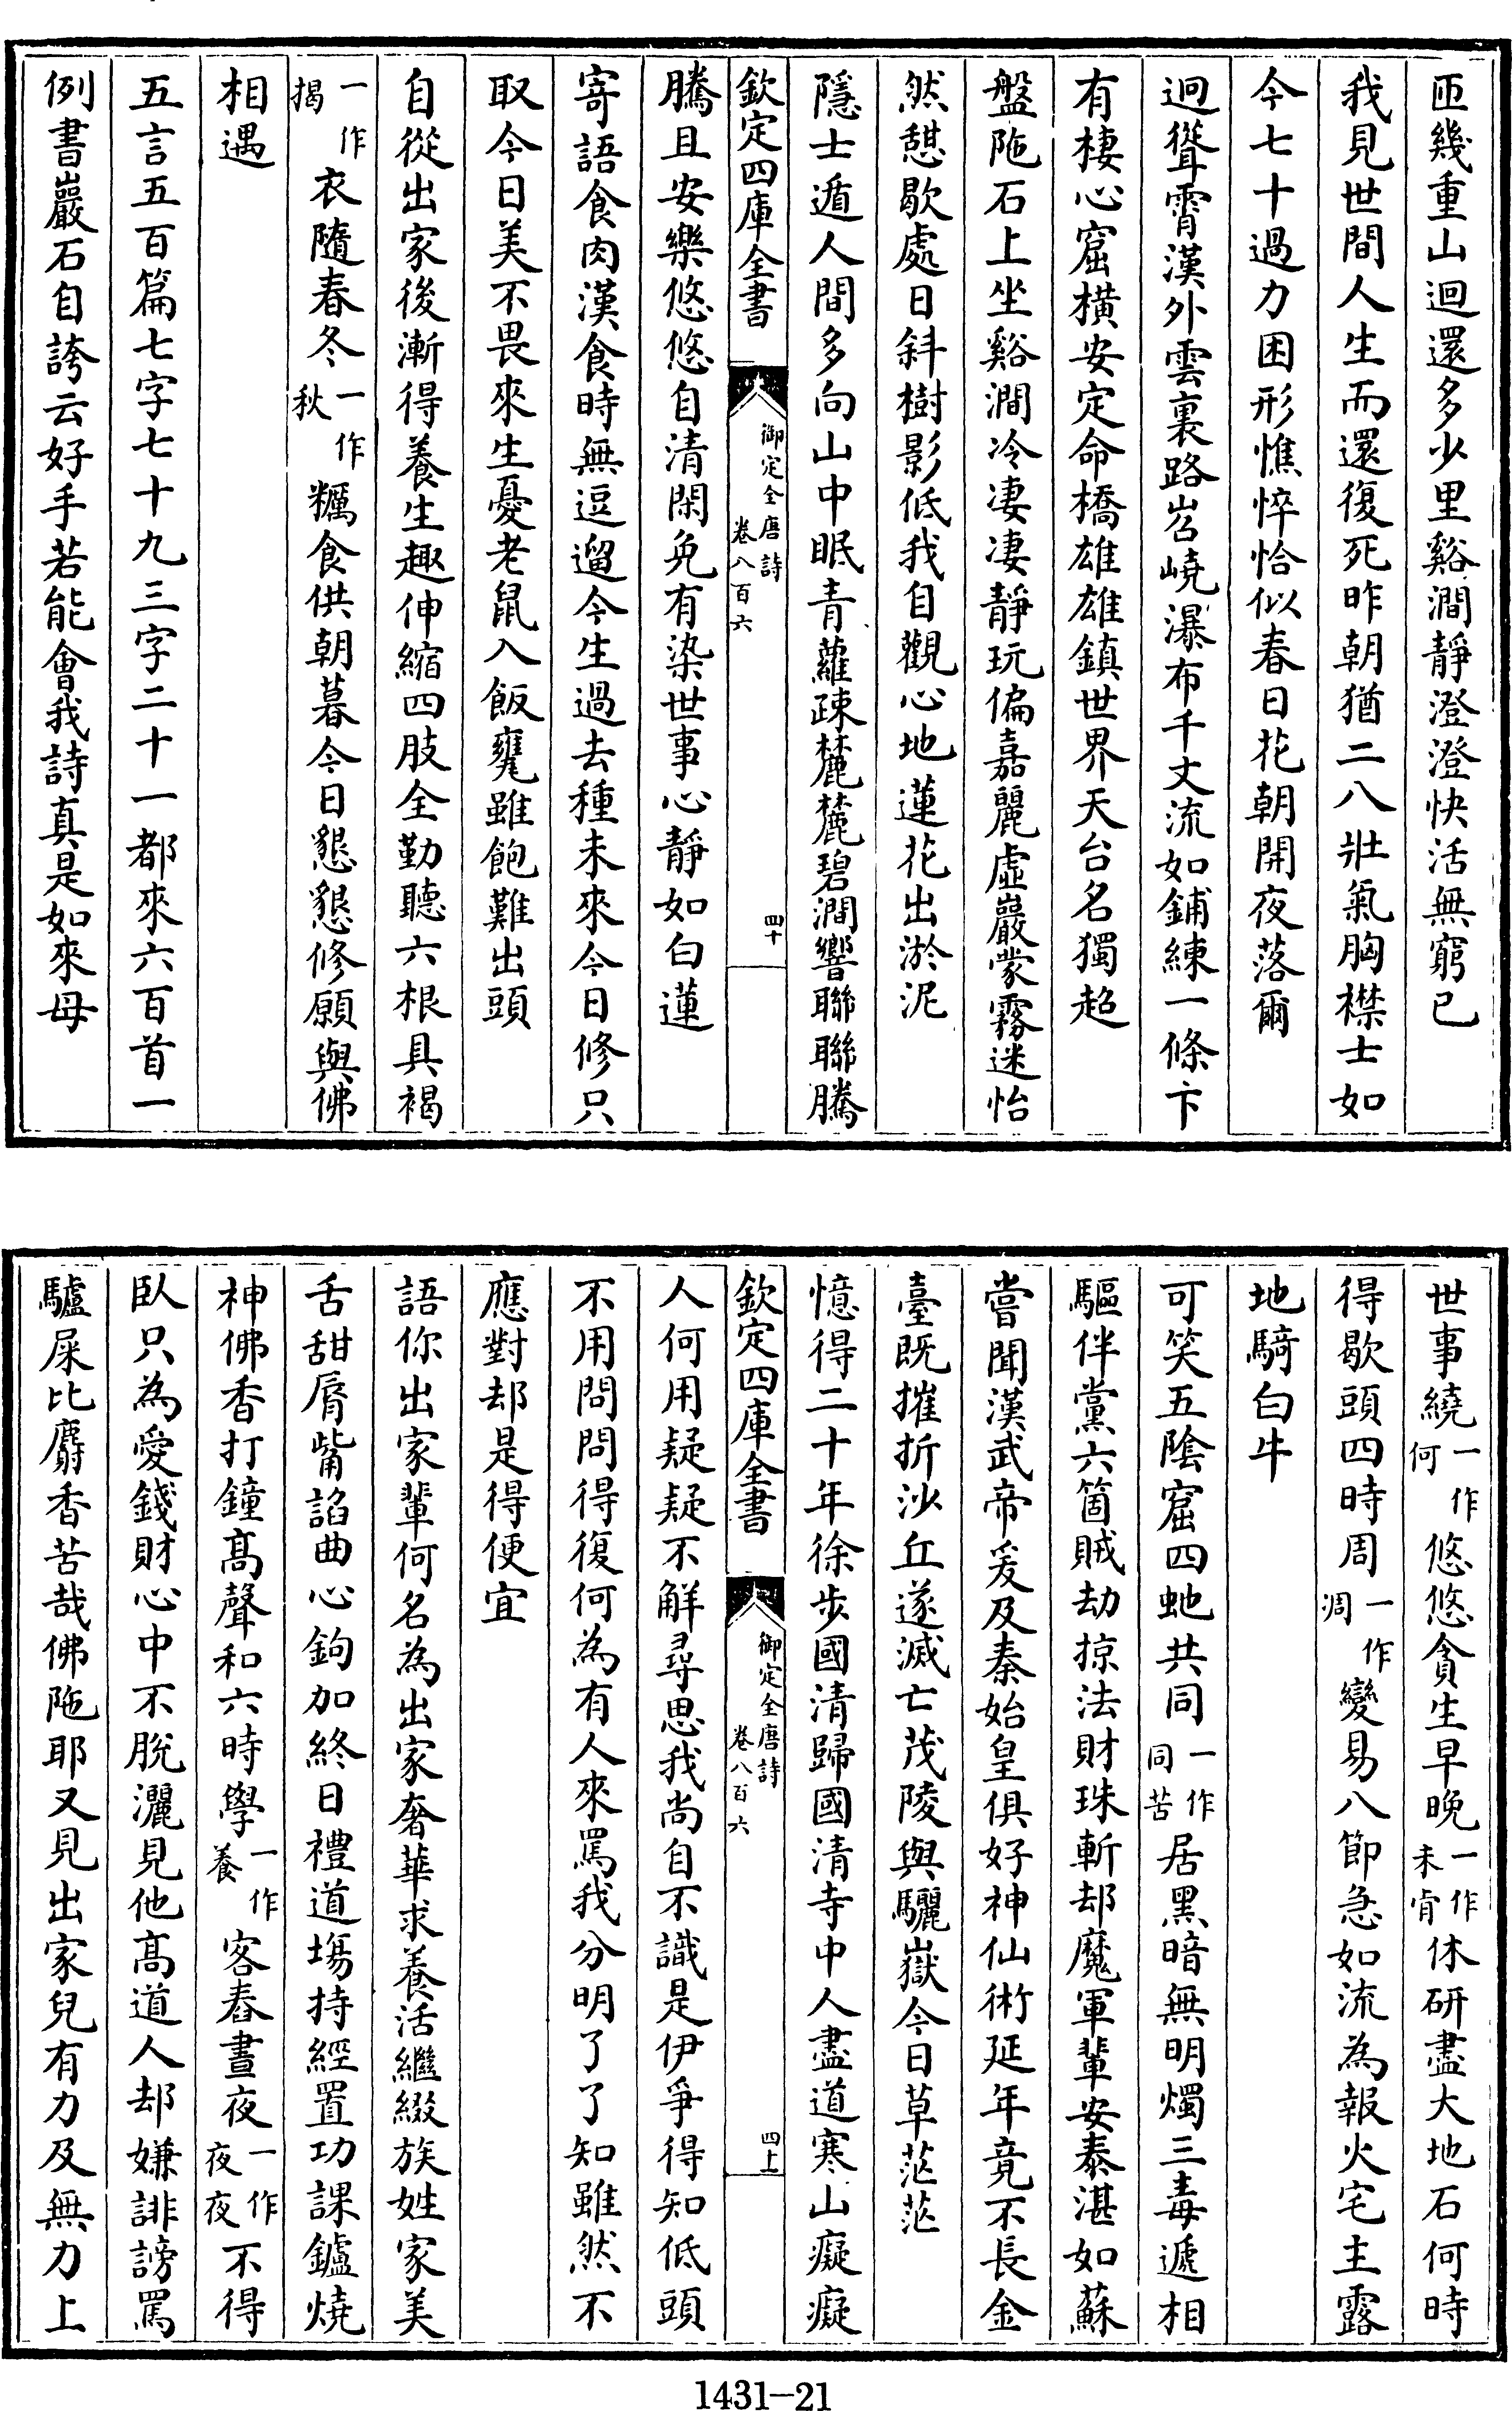 匝幾重山迴還多少里谿澗靜澄澄快活無窮已
我見世間人生而還復死昨朝猶二八壯氣胸襟士如
今七十過力困形憔悴恰似春日花朝開夜落爾
迥聳霄漢外雲裏路岧嶢瀑布千丈流如鋪練一條下
有棲心窟橫安定命橋雄雄鎮世界天台名獨超
盤陁石上坐谿澗冷凄凄靜玩偏嘉麗虛巖蒙霧迷怡
然憩歇處日斜樹影低我自觀心地蓮花出淤泥
隱士遁人間多向山中眠青蘿疎麓麓碧澗響聯聯騰
欽定四庫全書 御定全唐詩 卷八百六 四十
騰且安樂悠悠自清閑免有染世事心靜如白蓮
寄語食肉漢食時無逗遛今生過去種未來今日修只
取今日美不畏來生憂老鼠入飯甕雖飽難出頭
自從出家後漸得養生趣伸縮四肢全勤聽六根具褐
一作揭衣隨春冬一作秋糲食供朝暮今日懇懇修願與佛
相遇
五言五百篇七字七十九三字二十一都來六百首一
例書巖石自誇云好手若能會我詩真是如來母
世事繞一作何悠悠貪生早晚一作未肯休研盡大地石何時
得歇頭四時周一作凋變易八節急如流為報火宅主露
地騎白牛
可笑五陰窟四虵共同一作同苦居黑暗無明燭三毒遞相
驅伴黨六箇賊劫掠法財珠斬却魔軍輩安泰湛如蘇
嘗聞漢武帝爰及秦始皇俱好神仙術延年竟不長金
臺既摧折沙丘遂滅亡茂陵與驪嶽今日草茫茫
憶得二十年徐步國清歸國清寺中人盡道寒山癡癡
欽定四庫全書 御定全唐詩 卷八百六 四十一
人何用疑疑不解尋思我尚自不識是伊爭得知低頭
不用問問得復何為有人來罵我分明了了知雖然不
應對却是得便宜
語你出家輩何名為出家奢華求養活繼綴族姓家美
舌甜脣觜諂曲心鉤加終日禮道場持經置功課鑪燒
神佛香打鐘高聲和六時學一作養客舂晝夜一作夜夜不得
臥只為愛錢財心中不脫灑見他高道人却嫌誹謗罵
驢屎比麝香苦哉佛陁耶又見出家兒有力及無力上
1431-21